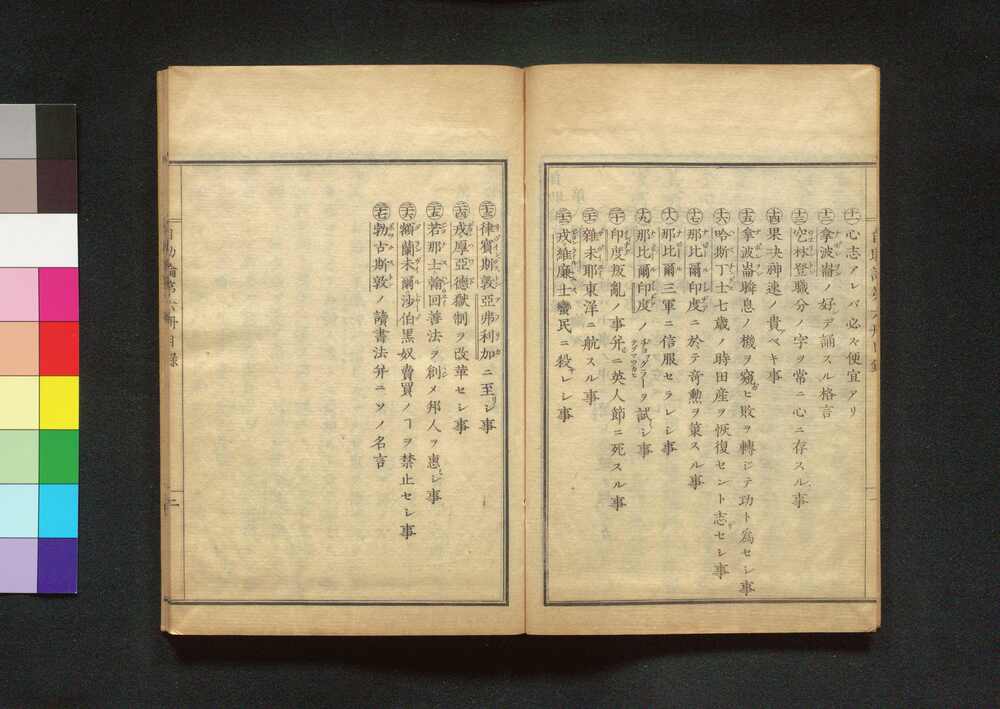 十一 心志アレバ必ズ便宜アリ
十二 拿波崙ノ好デ誦スル格言
十三 空林登職分ノ字ヲ常ニ心ニ存スル事
十四 果决神速ノ貴ベキ事
十五 拿波崙瞬息ノ機ヲ窺ヒ敗ヲ轉ジテ功ト為セシ事
十六 哈斯丁士七歳ノ時田産ヲ恢復セント志セシ事
十七 那比爾印度ニ於テ奇勲ヲ策スル事
十八 那比爾三軍ニ信服セラレシ事
十九 那比爾印度ノヂョッグラーヲ試シ事
二十 印度叛亂ノ事并ニ英人節ニ死スル事
二十一 雜未耶東洋ニ航スル事
二十二 戎維廉士蠻民ニ殺レシ事
二十三 律賓斯敦亞弗利加ニ至シ事
二十四 戎厚亞德獄制ヲ改革セシ事
二十五 若那士翰回善法ヲ創メ邦人ヲ惠シ事
二十六 額蘭未爾沙伯黒奴賣買ノヿヲ禁止セシ事
二十七 勃古斯敦ノ讀書法并ニ二ツノ名言
自助論第六冊目録
二